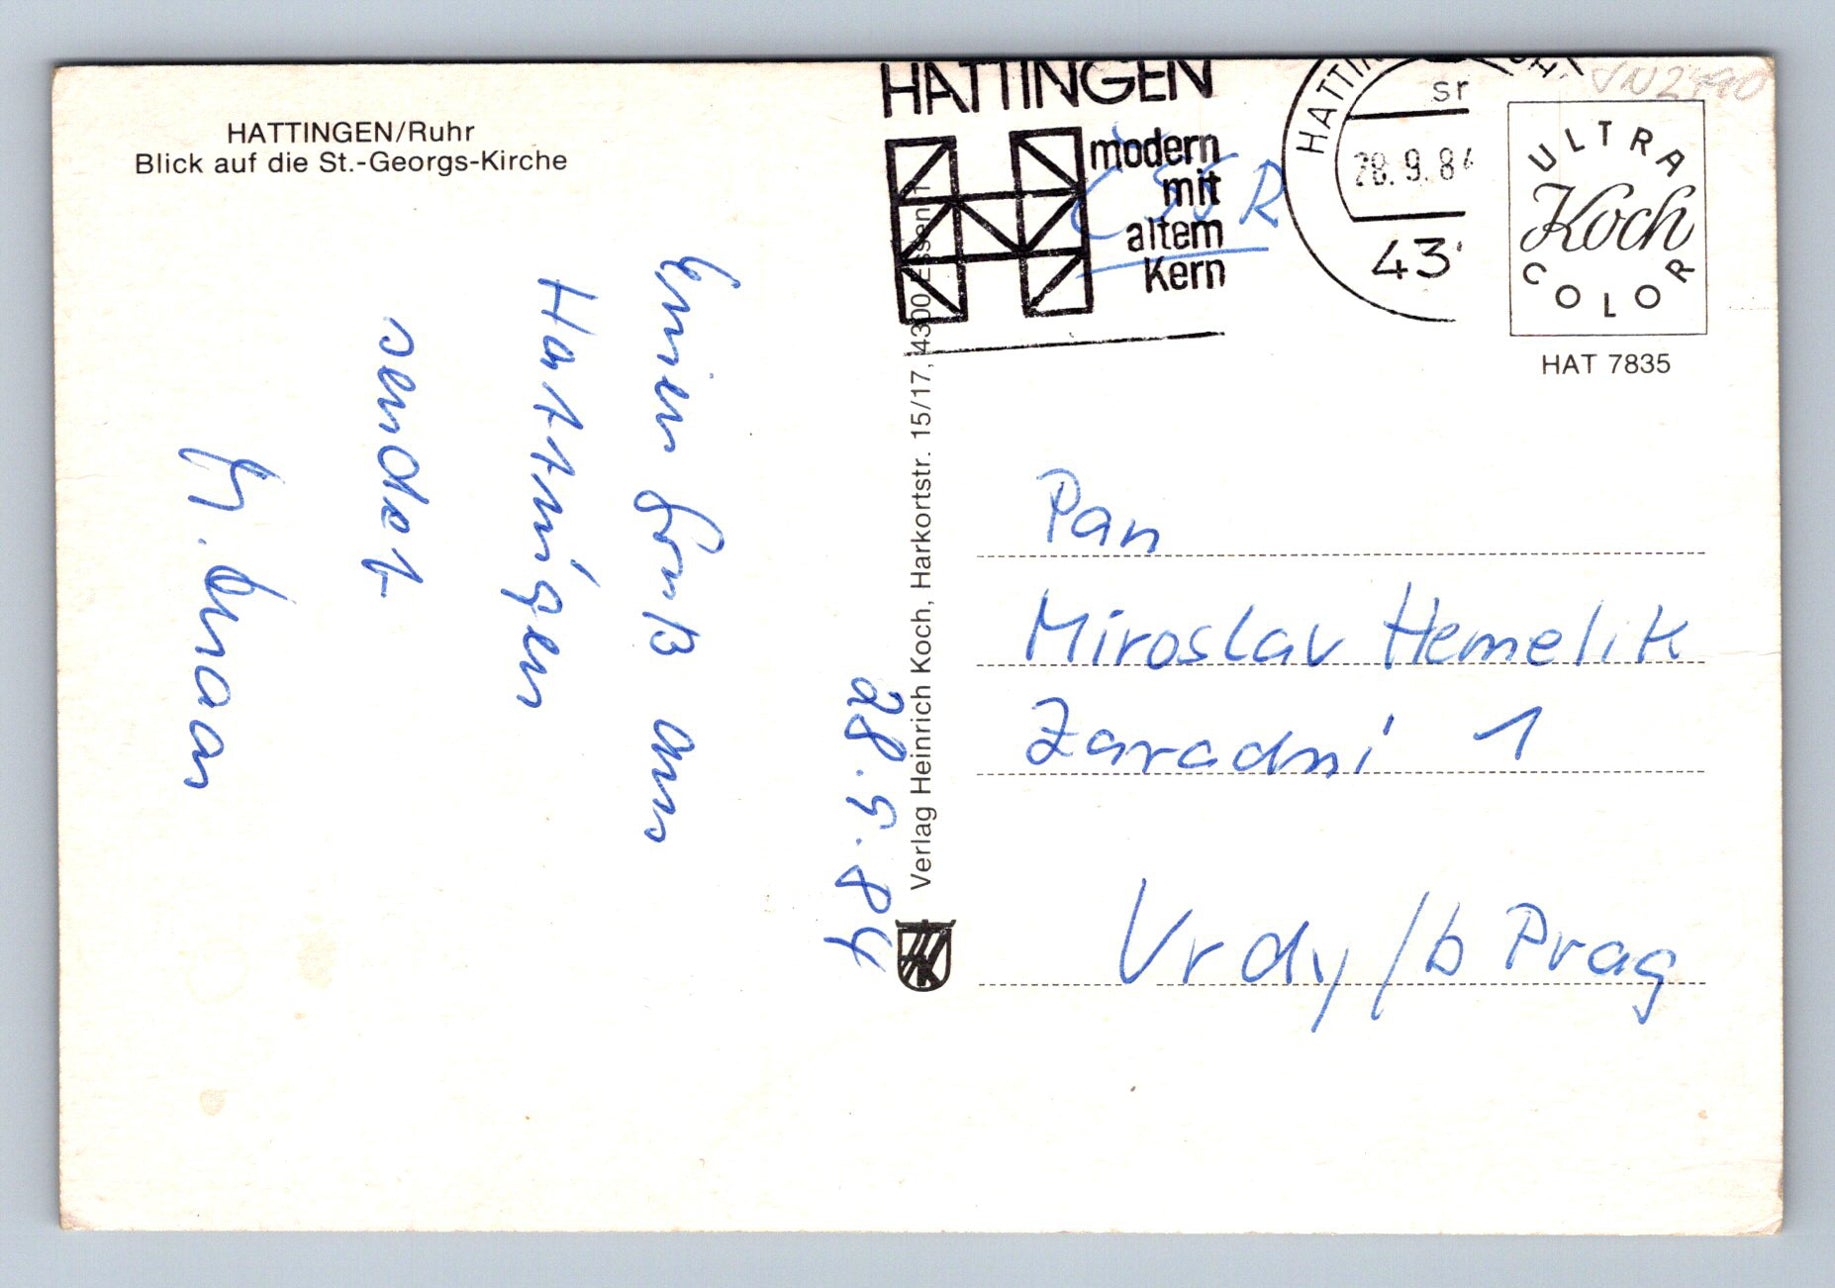 HATTINGEN/Ruhr
Blick auf die St.-Georgs-Kirche
Einen Gruß aus
Hattingen
sendet
28.9.84
Verlag Heinrich Koch, Harkortstr. 15/17, 4300 Essen 1
HATTINGEN
modern
mit
altem
Kern
ČSSR
28.9.84
43
ULTRA
Koch
COLOR
HAT 7835
Pan
Miroslav Hemelik
Zaradni 1
Vrdy/b Prag